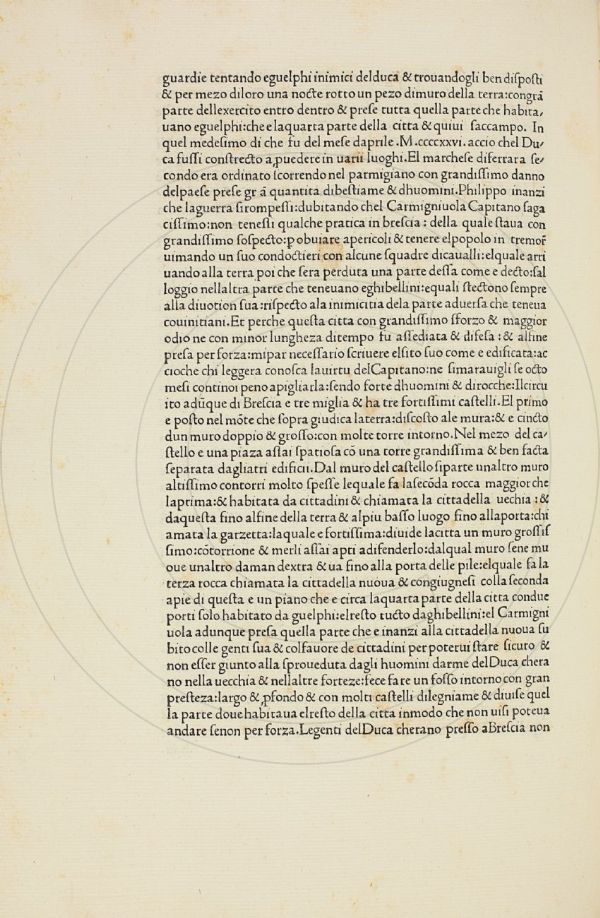 guardie tentando eguelphi inimici delduca & trouandogli ben disposti
& per mezo diloro una nocte rotto un pezo dimuro della terra:congrã
parte dellexercito entro dentro & prese tutta quella parte che habita,
uano eguelphi:che e laquarta parte della citta & quiui saccampo. In
quel medesimo di che fu del mese daprile.M.ccccxxvi.accio chel Du,
ca fussi constrecto a ꝓuedere in uarii luoghi.El marchese diferrara se,
condo era ordinato scorrendo nel parmigiano con grandissimo danno
delpaese prese grã quantita dibestiame & dhuomini.Philippo inanzi
che laguerra sirompessi:dubitando chel Carmigniuola Capitano saga
cissimo:non tenessi qualche pratica in brescia: della quale staua con
grandissimo sospecto:ꝑ obuiare apericoli & tenere elpopolo in tremor̃
uimando un suo condoctieri con alcune squadre dicaualli:elquale arri
uando alla terra poi che sera perduta una parte dessa come e decto:sal
loggio nellaltra parte che teneuano eghibellini:equali stectono sempre
alla diuotion sua:rispecto ala inimicitia dela parte aduersa che teneua
couinitiani.Et perche questa citta con grandissimo sforzo & maggior
odio ne con minor lungheza ditempo fu assediata & difesa:& alfine
presa per forza:mipar necessario scriuere elsito suo come e edificata:ac
cioche chi leggera conosca lauirtu delCapitano:ne simarauigli se octo
mesi continoi peno apigliarla:sendo forte dhuomini & dirocche:Ilcircu
ito adũque di Brescia e tre miglia & ha tre fortissimi castelli.El primo
e posto nel mõte che sopra giudica laterra:discosto ale mura:& e cincto
dun muro doppio & grosso:con molte torre intorno.Nel mezo del ca,
stello e una piaza assai spatiosa cõ una torre grandissima & ben facta
separata dagliatri edificii.Dal muro del castello siparte unaltro muro
altissimo contorri molto spesse lequale fa lasecõda rocca maggior che
laprima:& habitata da cittadini & chiamata la cittadella uechia:&
daquesta fino alfine della terra & alpiu basso luogo fino allaporta:chi
amata la garzetta:laquale e fortissima:diuide lacitta un muro grossis
simo:cõtorrione & merli assai apti adifenderlo:dalqual muro sene mu
oue unaltro daman dextra & ua fino alla porta delle pile:elquale fa la
terza rocca chiamata la cittadella nuoua & congiugnesi colla seconda
apie di questa e un piano che e circa laquarta parte della citta condue
porti solo habitato da guelphi:elresto tucto daghibellini:el Carmigni
uola adunque presa quella parte che e inanzi alla cittadella nuoua su
bito colle genti sua & colfauore de cittadini per poterui stare sicuro &
non esser giunto alla sproueduta dagli huomini darme delDuca chera
no nella uecchia & nellaltre forteze:fece fare un fosso intorno con gran
presteza:largo & ꝓfondo & con molti castelli dilegniame & diuise quel
la parte doue habitaua elresto della citta inmodo che non uisi poteua
andare senon per forza.Legenti delDuca cherano presso aBrescia non